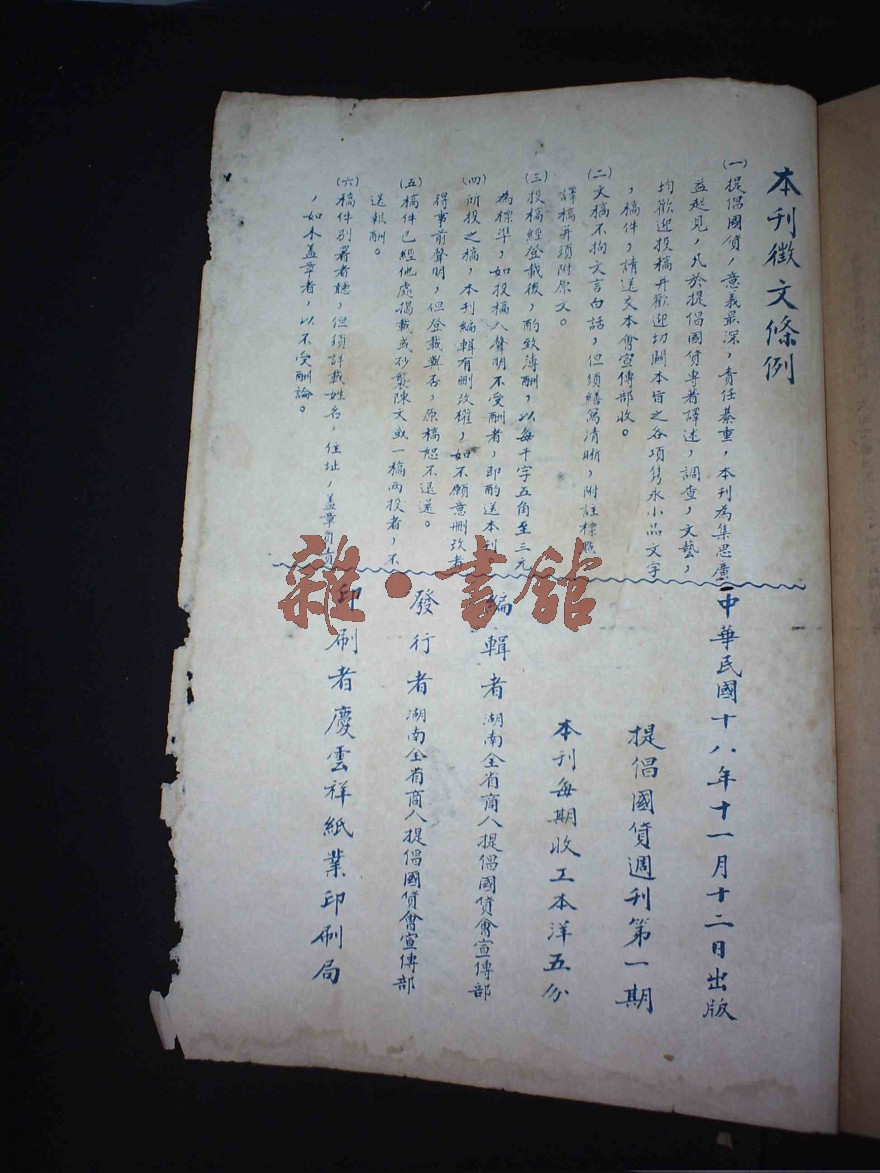 本刊徵文條例
(一)提倡國貨，意義最深，責任綦重，本刊為集思廣
益起見，凡於提倡國貨專著譯述，調查，文藝，
均歡迎投稿并歡迎切關本旨之各項雋永小品文字
，稿件，請送交本會宣傳部收。
(二)文稿不拘文言白話，但須繕寫清晰，附註標點
譯稿并須附原文。
(三)投稿經登載後，酌致薄酬，以每千字五角至三元
為標準，如投稿人聲明不受酬者，即酌送本刊。
(四)所投之稿，本刊編輯有刪改權，如不願意刪改者
得事前聲明，但登載與否，原稿恕不退還。
(五)稿件已經他處揭載或抄襲陳文或一稿兩投者，不
送報酬。
(六)稿件別署者聽，但須詳載姓名，住址，蓋章負責
，如未蓋章者，以不受酬論。
中華民國十八年十一月十二日出版
提倡國貨週刊第一期
本刊每期收工本洋五分
編輯者 湖南全省商人提倡國貨會宣傳部
發行者 湖南全省商人提倡國貨會宣傳部
印刷者 慶雲祥紙業印刷局
雜·書館